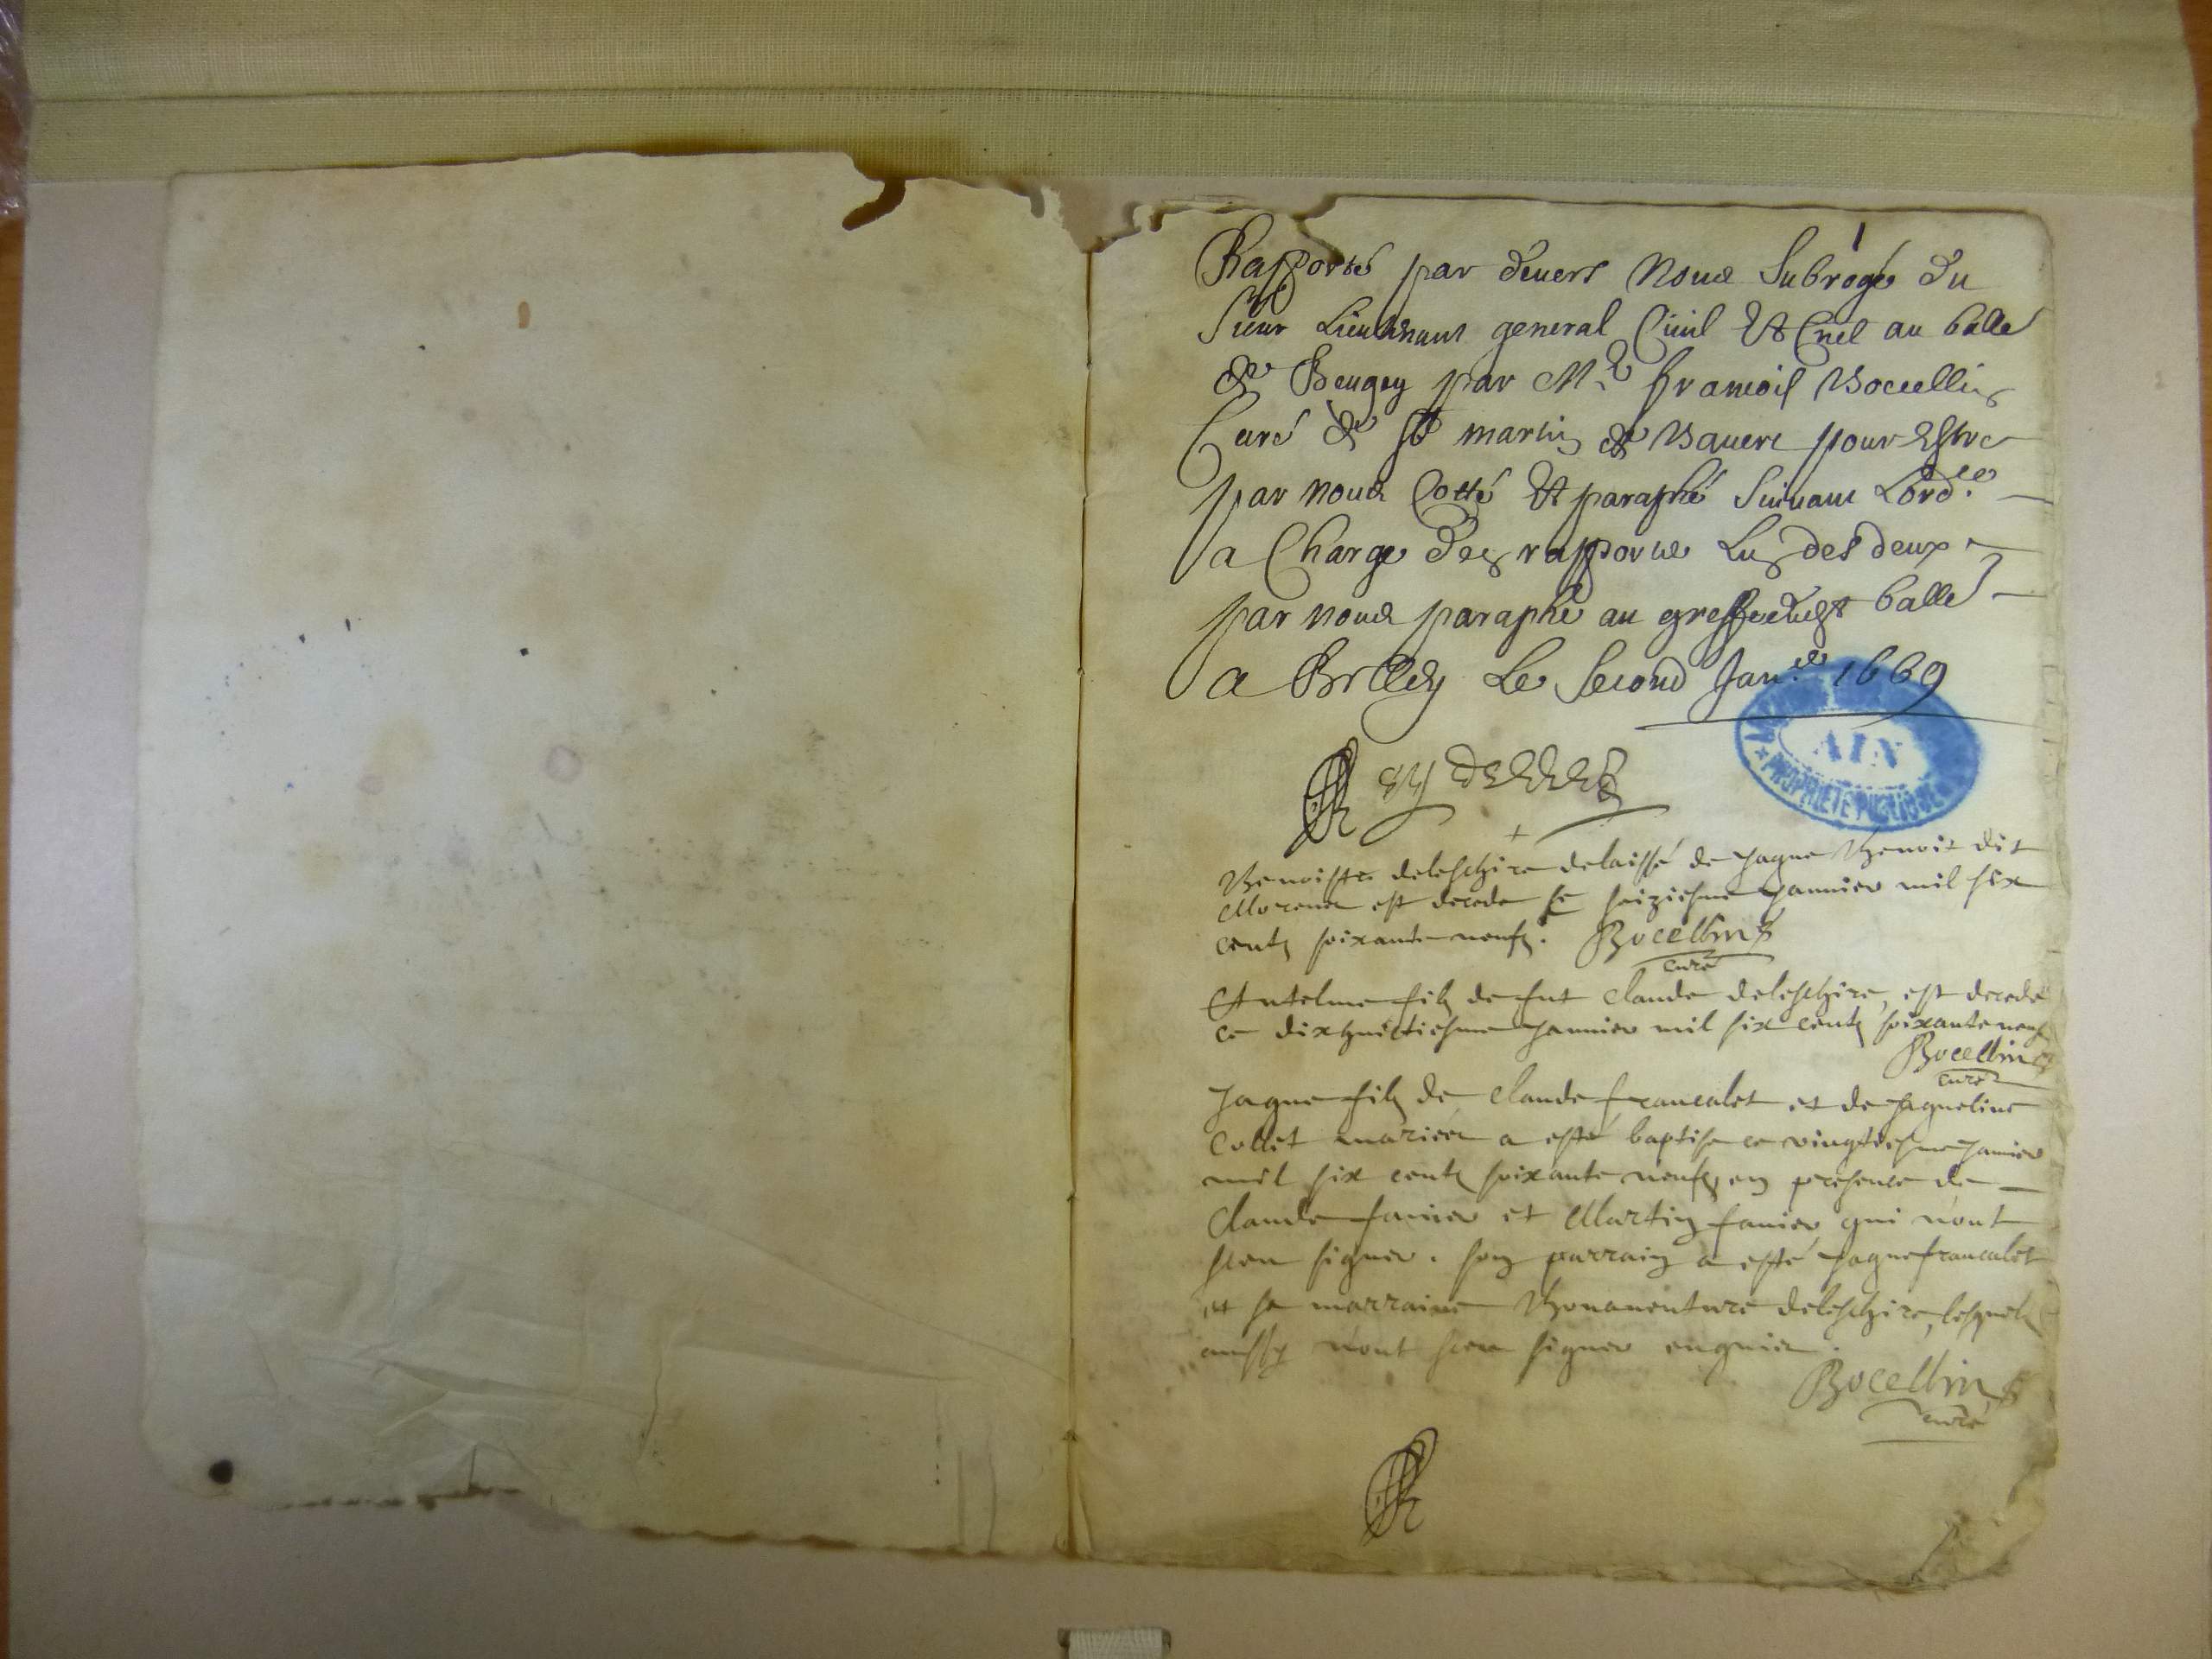 1
Rapporté par devers Nous Subrogé du
Sieur Lieutenant general Ciuil Et Cnel au balle
de Beugey par Mre francois Bocellin
Curé de st martin de Bavere pour Estre
par nous Cotté Et paraphé Suivant Lordce
a Charge den rapporter Lun des deux
par nous paraphé au greffe dudt balle
a Belley Le Second Janer 1669
AIN
PROPRIETE PUBLIQUE
Benoiste deleschire delaissé de Jaque Benoit dit
est decede ce seiziesme Jannier mil six
cents soixante neufz. Bocellin
curé
Antelme filz de fut Claude deleschire, est decede
ce dixhuictiesme Jannier mil six cents soixante neufz
Bocellin
curé
Jaque filz de Claude francalet et de Jaqueline
Collet mariés a esté baptise ce vingtiesme Janier
mil six cents soixante neufz, en presence de
Claude fanier et Martin fanier qui n'ont
sceu signer. son parrain a esté Jaque francalet
et sa marraine Bonauenture deleschire, lesquels
aussy n'ont sceu signer enquis.
Bocellin
curé